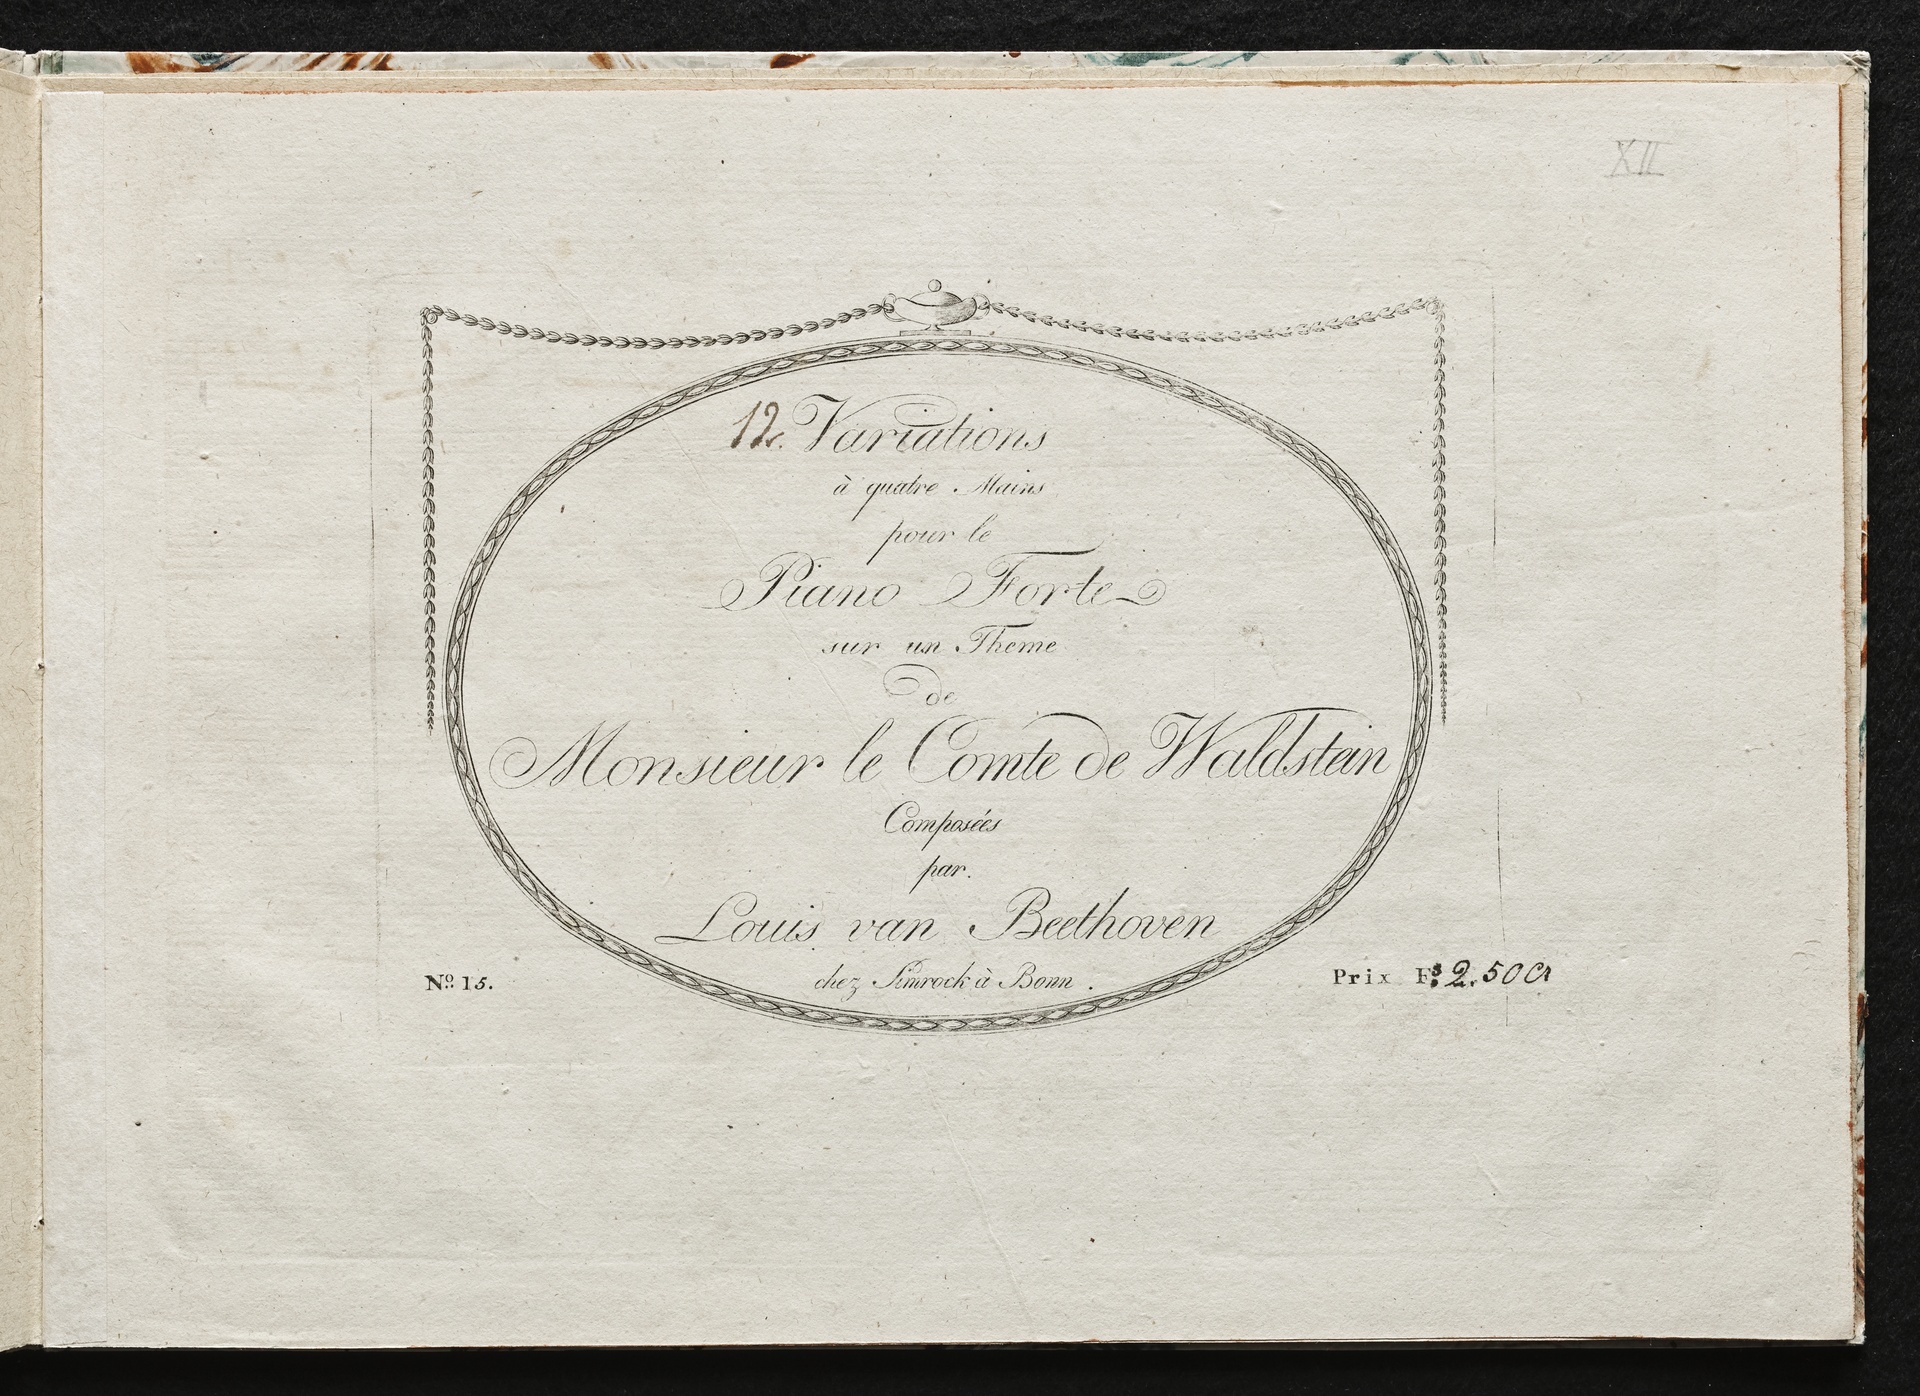 XII
12. Variations
à quatre Mains
pour le
Piano Forte
sur un Theme
de
Monsieur le Comte de Waldstein
Composées
par.
Louis van Beethoven
chez Simrock à Bonn.
No. 15.
Prix Fs. 2. 50 Cs